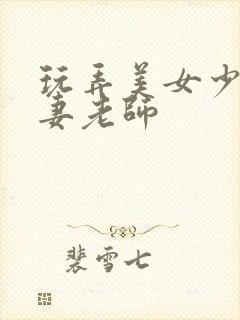 玩弄美女少
妻老师
裴雪七